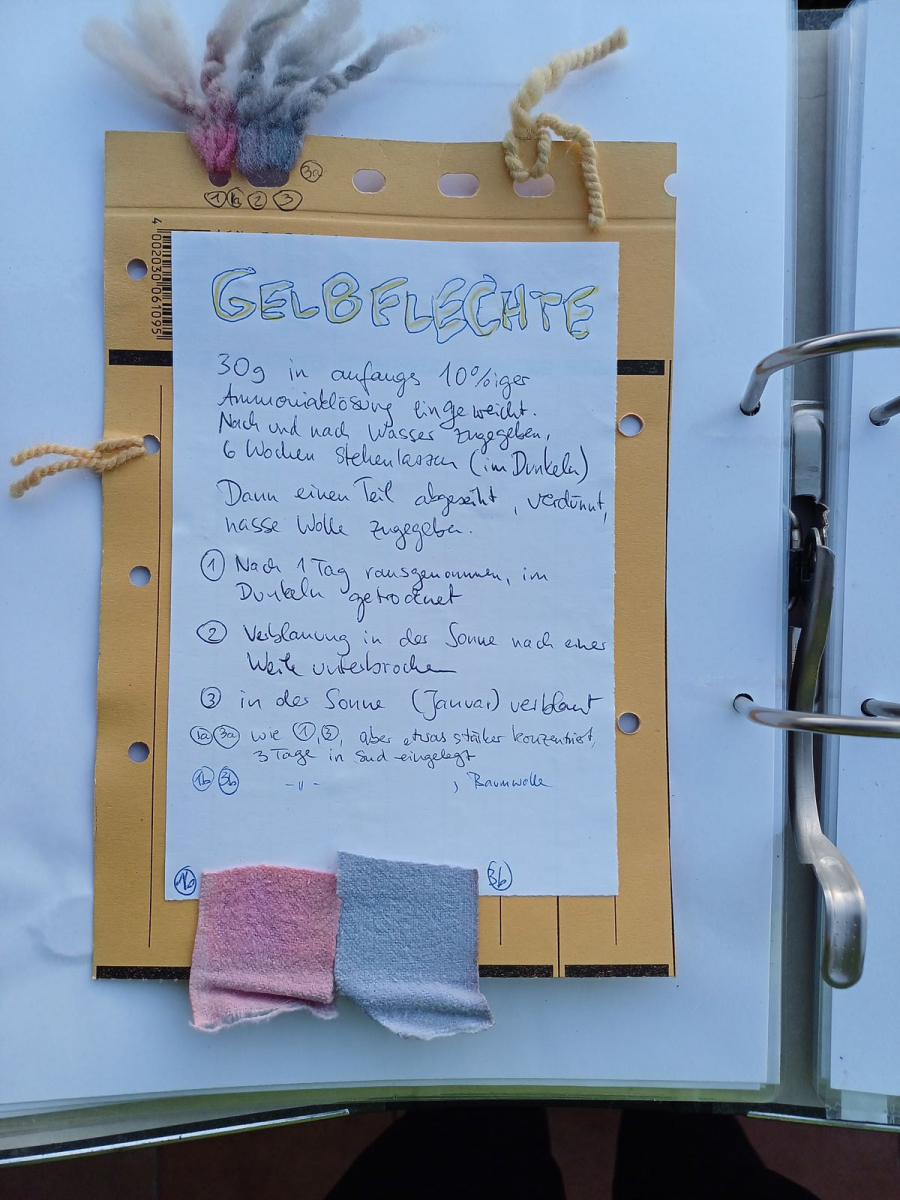 1 1a 2 3 3a
4 002030 061095
GELBFLECHTE
30g in anfangs 10%iger
Ammoniaklösung eingeweicht.
Nach und nach Wasser zugegeben,
6 Wochen stehenlassen (im Dunkeln)
Dann einen Teil abgeseiht, verdünnt,
nasse Wolle zugegeben.
1 Nach 1 Tag rausgenommen, im
Dunkeln getrocknet
2 Verblauung in der Sonne nach einer
Weile unterbrochen
3 in der Sonne (Januar) verblaut
1a 3a wie 1, 3, aber etwas stärker konzentriert,
3 Tage in Sud eingelegt
1b 3b -"- , Baumwolle
1b 3b